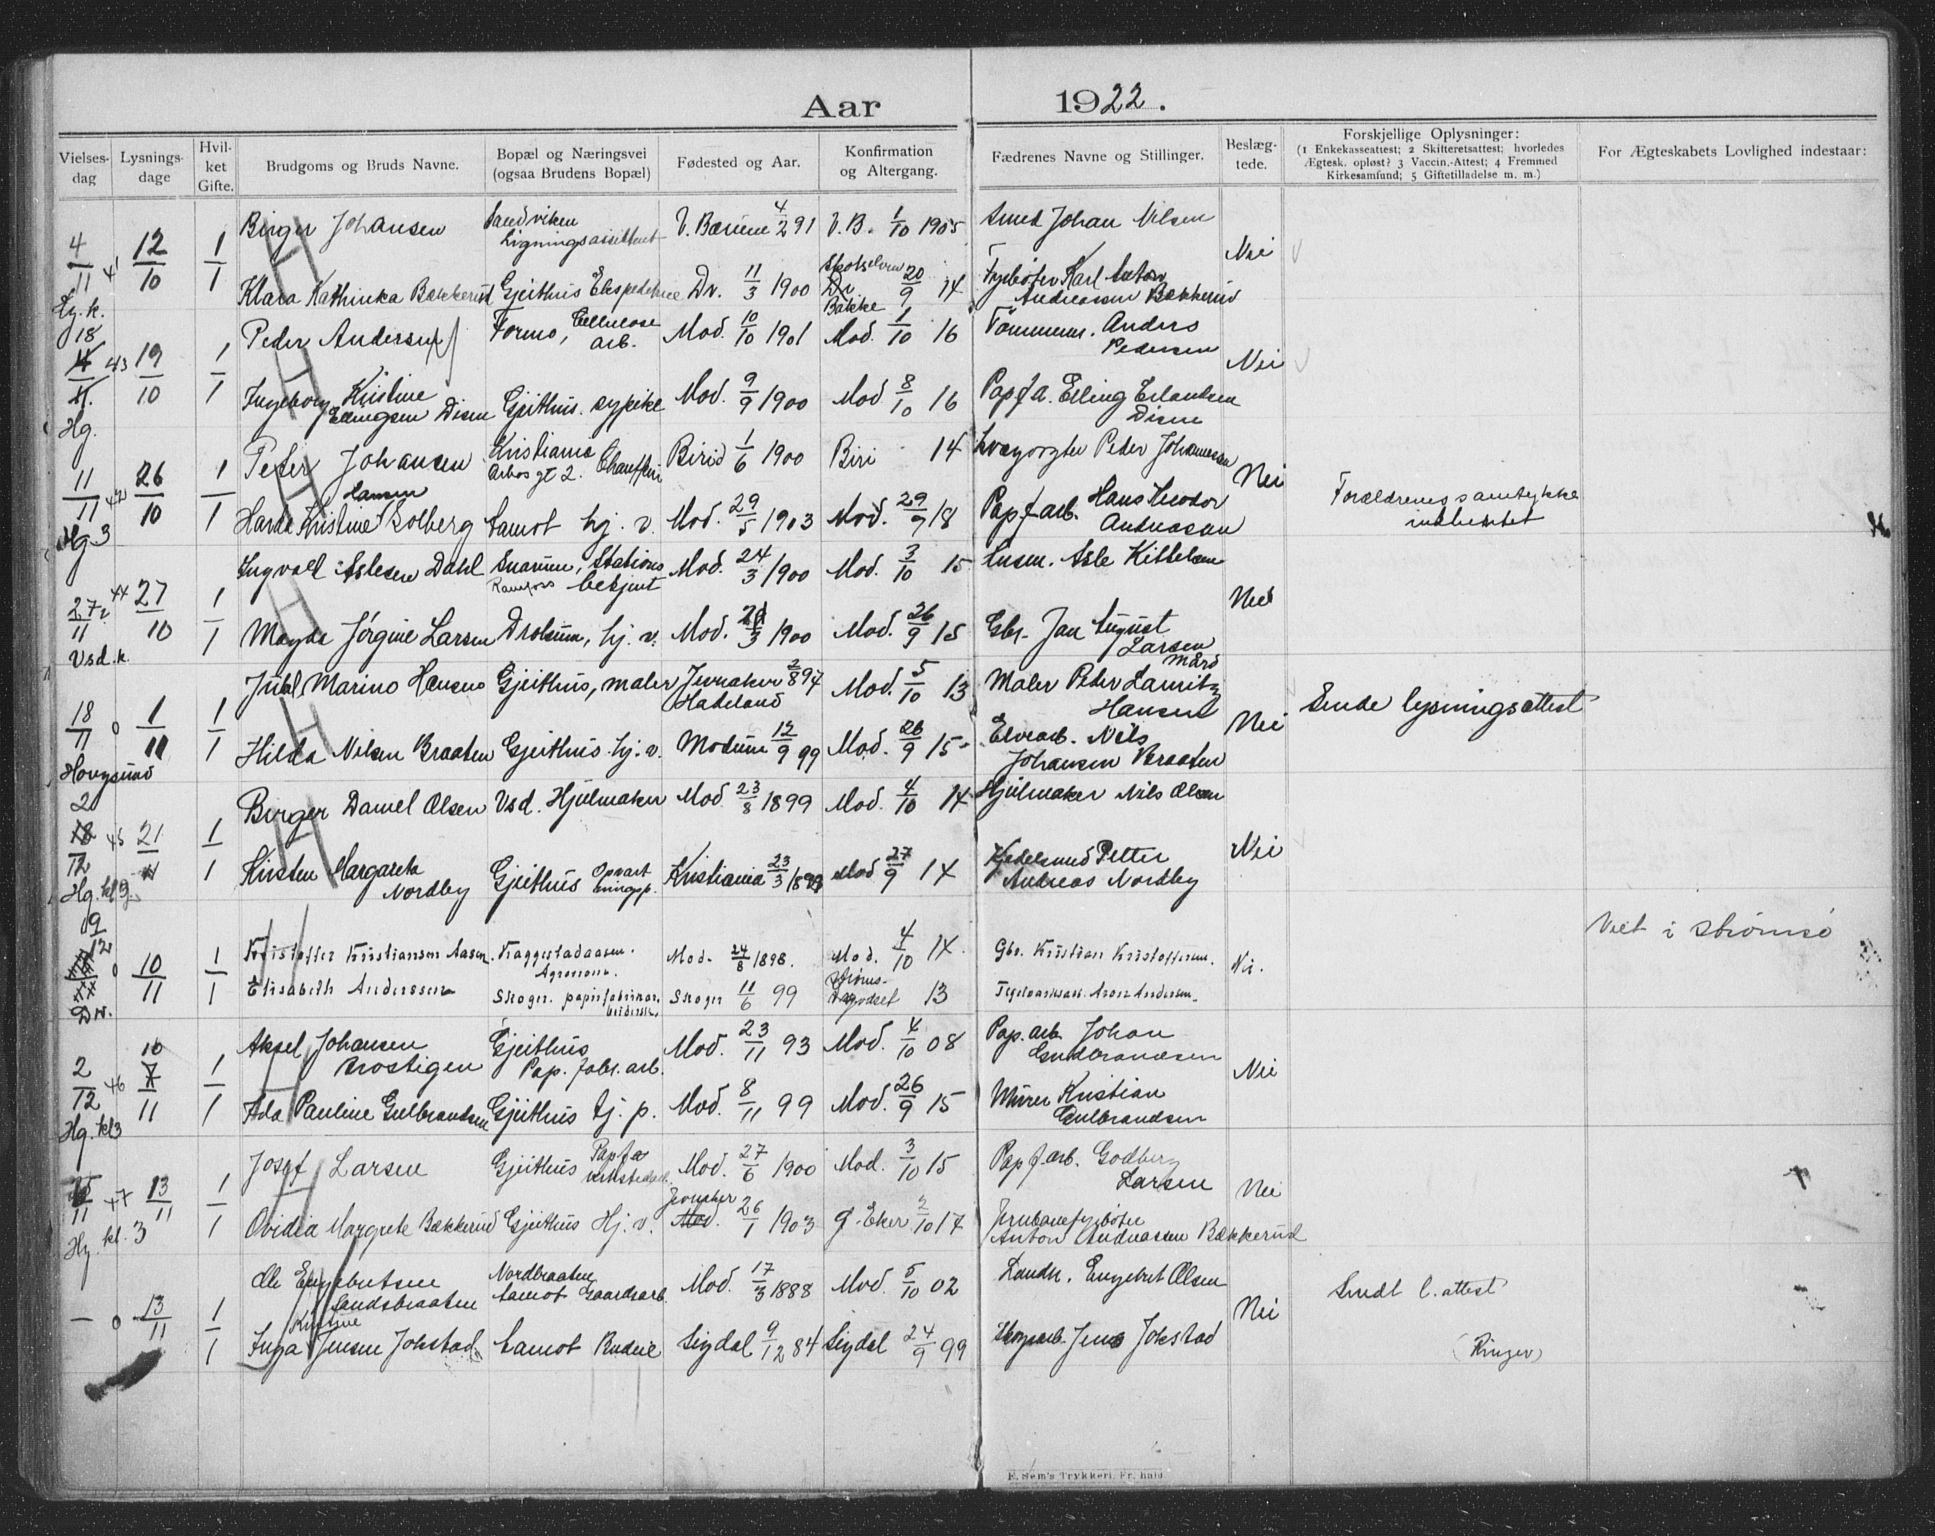 Aar 1922.
Vielses-dag
Lysnings-dage
Hvil-ket Gifte.
Brudgoms og Bruds Navne.
Bopæl og Næringsvei (ogsaa Brudens Bopæl)
Fødested og Aar.
Konfirmation og Altergang.
Fædrenes Navne og Stillinger.
Beslæg-tede.
Forskjellige Oplysninger:
(1 Enkekasseattest; 2 Skifteretsattest; hvorledes
Ægtesk. opløst? 3 Vaccin.-Attest; 4 Fremmed
Kirkesamfund; 5 Giftetilladelse m. m.)
For Ægteskabets Lovlighed indestaar:
4/11 41 12/10 1/1
Birger Johansen Sandviken Ligningsassistent V. Bærum 4/2 91 V. B. 1/10 1905 Smed Johan Nilsen
Nei
Klara Kathinka Bækkerud Gjeithus Ekspeditrice Dr. 11/3 1900 Skotselven 20/9 14 Fyrbøter Karl Anton
Bakke Andreassen Bækkerud
18/11 43 19/10 1/1
Hg.
Peder Andersen Formo, Cellulose arb. Mod. 10/10 1901 Mod. 1/10 16 Tømmerm. Anders Pedersen
Nei
Ingeborg Kristine Ellingsen Disen Gjeithus. sypike Mod. 9/9 1900 Mod 8/10 16 Pap f a. Elling Erlandsen Disen
11/11 42 26/10 1/1
Hg 3
Peter Johansen Kristiania Chauffør Birid 1/6 1900 Biri 14 Peder Johannessen
Nei
Forældrenes samtykke
indhentet
Hansen
Kristine Solberg Aamot hj. v. Mod. 29/5 1903 Mod. 29/9 18 Pap f arb. Hans Teodor Andreasen
27/11 44 27/10 1/1
Vsd. k.
Ingvald Aslesen Dahl Snarum, Stations betjent Ramfoss Mod. 24/3 1900 Mod. 3/10 15 Asle Kittelsen
Nei
Magda Jørgine Larsen Drolsum, hj. v. Mod. 1900 Mod. 26/9 15 Gbr. Jan August Larsen Mård
18/11 0 1/11 1/1
Juhl Marino Hansen Gjeithus, maler Jevnaker Hadeland 2/8 94 Mod. 5/10 13 Maler Peder Lauritz Hansen
Nei
Sende lysningsattest
Hilda Nilsen Braaten Gjeithus hj. v. Modum 12/9 99 Mod. 26/9 15 Elvearb. Nils Johansen Braaten
2/12 45 21/11 1/1
Hg. kl
Birger Daniel Olsen Vsd. Hjulmaker Mod 23/8 1899 Mod. 4/10 14 Hjulmaker Nils Olsen
Nei
Kirsten Margarete Nordby Gjeithus Opvartningsp. Kristiania 23/3 Mod 27/9 14 Kjedelsmed Petter Andreas Nordby
9/12 0 10/11 1/1
Dr.
Kristoffer Kristiansen Aasen Kaggestadaasen. Agronom. Mod. 24/8 1898. Mod. 4/10 14. Gbr. Kristian Kristoffersen.
Nei.
Viet i Strømsø
Elisabeth Anderssen Skoger. papirfabrikar. Skoger 11/6 99 Strøms-godset 13 Aron Andersen
2/12 46 1/1
Hg. kl 3
Aksel Johansen Mostigen Gjeithus Pap. fabr. arb. Mod. 23/11 93 Mod. 4/10 08 Pap. arb. Johan Gulbrandsen
Nei
Ada Pauline Gulbrandsen Gjeithus tj. p. Mod. 8/11 99 Mod. 26/9 15 Murer Kristian Gulbrandsen
47 13/11 1/1
Hg. kl. 3
Josef Larsen Gjeithus Mod. 27/6 1900 Mod. 3/10 15 Pap f arb. Godberg Larsen
Nei
Ovidia Margrete Bækkerud Gjeithus Hj. v. Jevnaker 26/1 1903 Ø. Eker 2/10 17 Jernbanefyrbøter Anton Andreassen Bækkerud
— 0 13/11 1/1
Ole Engebretsen Sandsbraaten Nordbraaten Aamot Gaardsarb. Mod. 17/3 1888 Mod. 5/10 02 Landh. Engebret Olsen
Nei
Sendt l. attest
Kristine
Inga Jensen Jokstad Aamot Budeie Sigdal 9/12 84 Sigdal 24/9 99 Jens Jokstad
(Ringer)
E. Sem's Trykkeri, Fr. hald